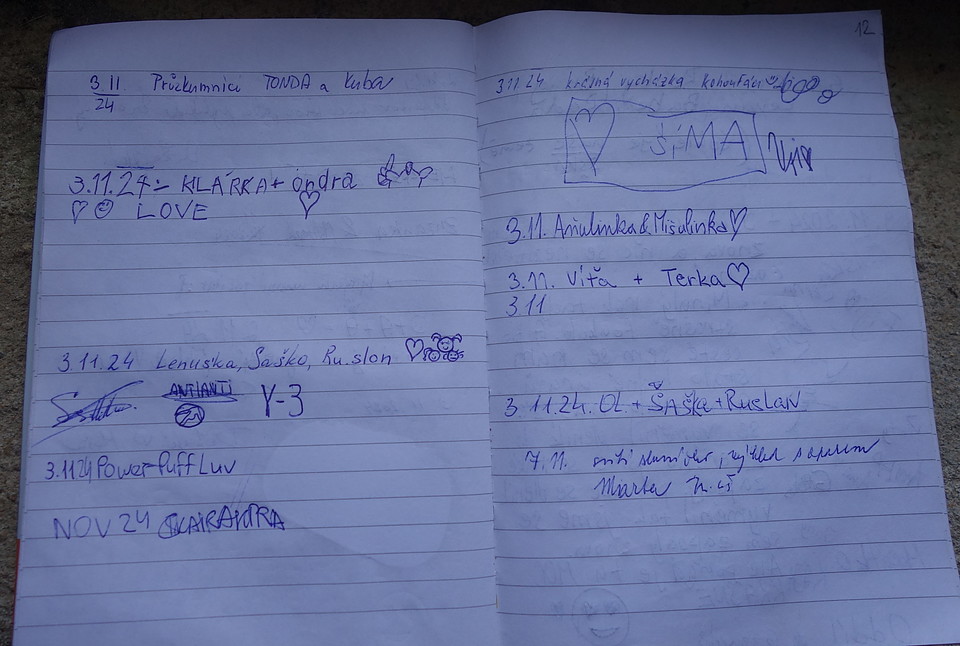 3 11 Průzkumníci TONDA a Kuba
24
3.11.24 - KLÁRKA + óndra
LOVE
3.11.24 Lenuska, Saško, Ru.slon
ANTIANTI Y-3
3.1124 Power-Puff Luv
NOV 24
12
3.11.24 krásná vycházka
ŠíMA
3.11. Aňulinka & Mišulinka
3.11. Víťa + Terka
3.11
3 11.24. Ol + ŠAška + RUSLAN
7.11.